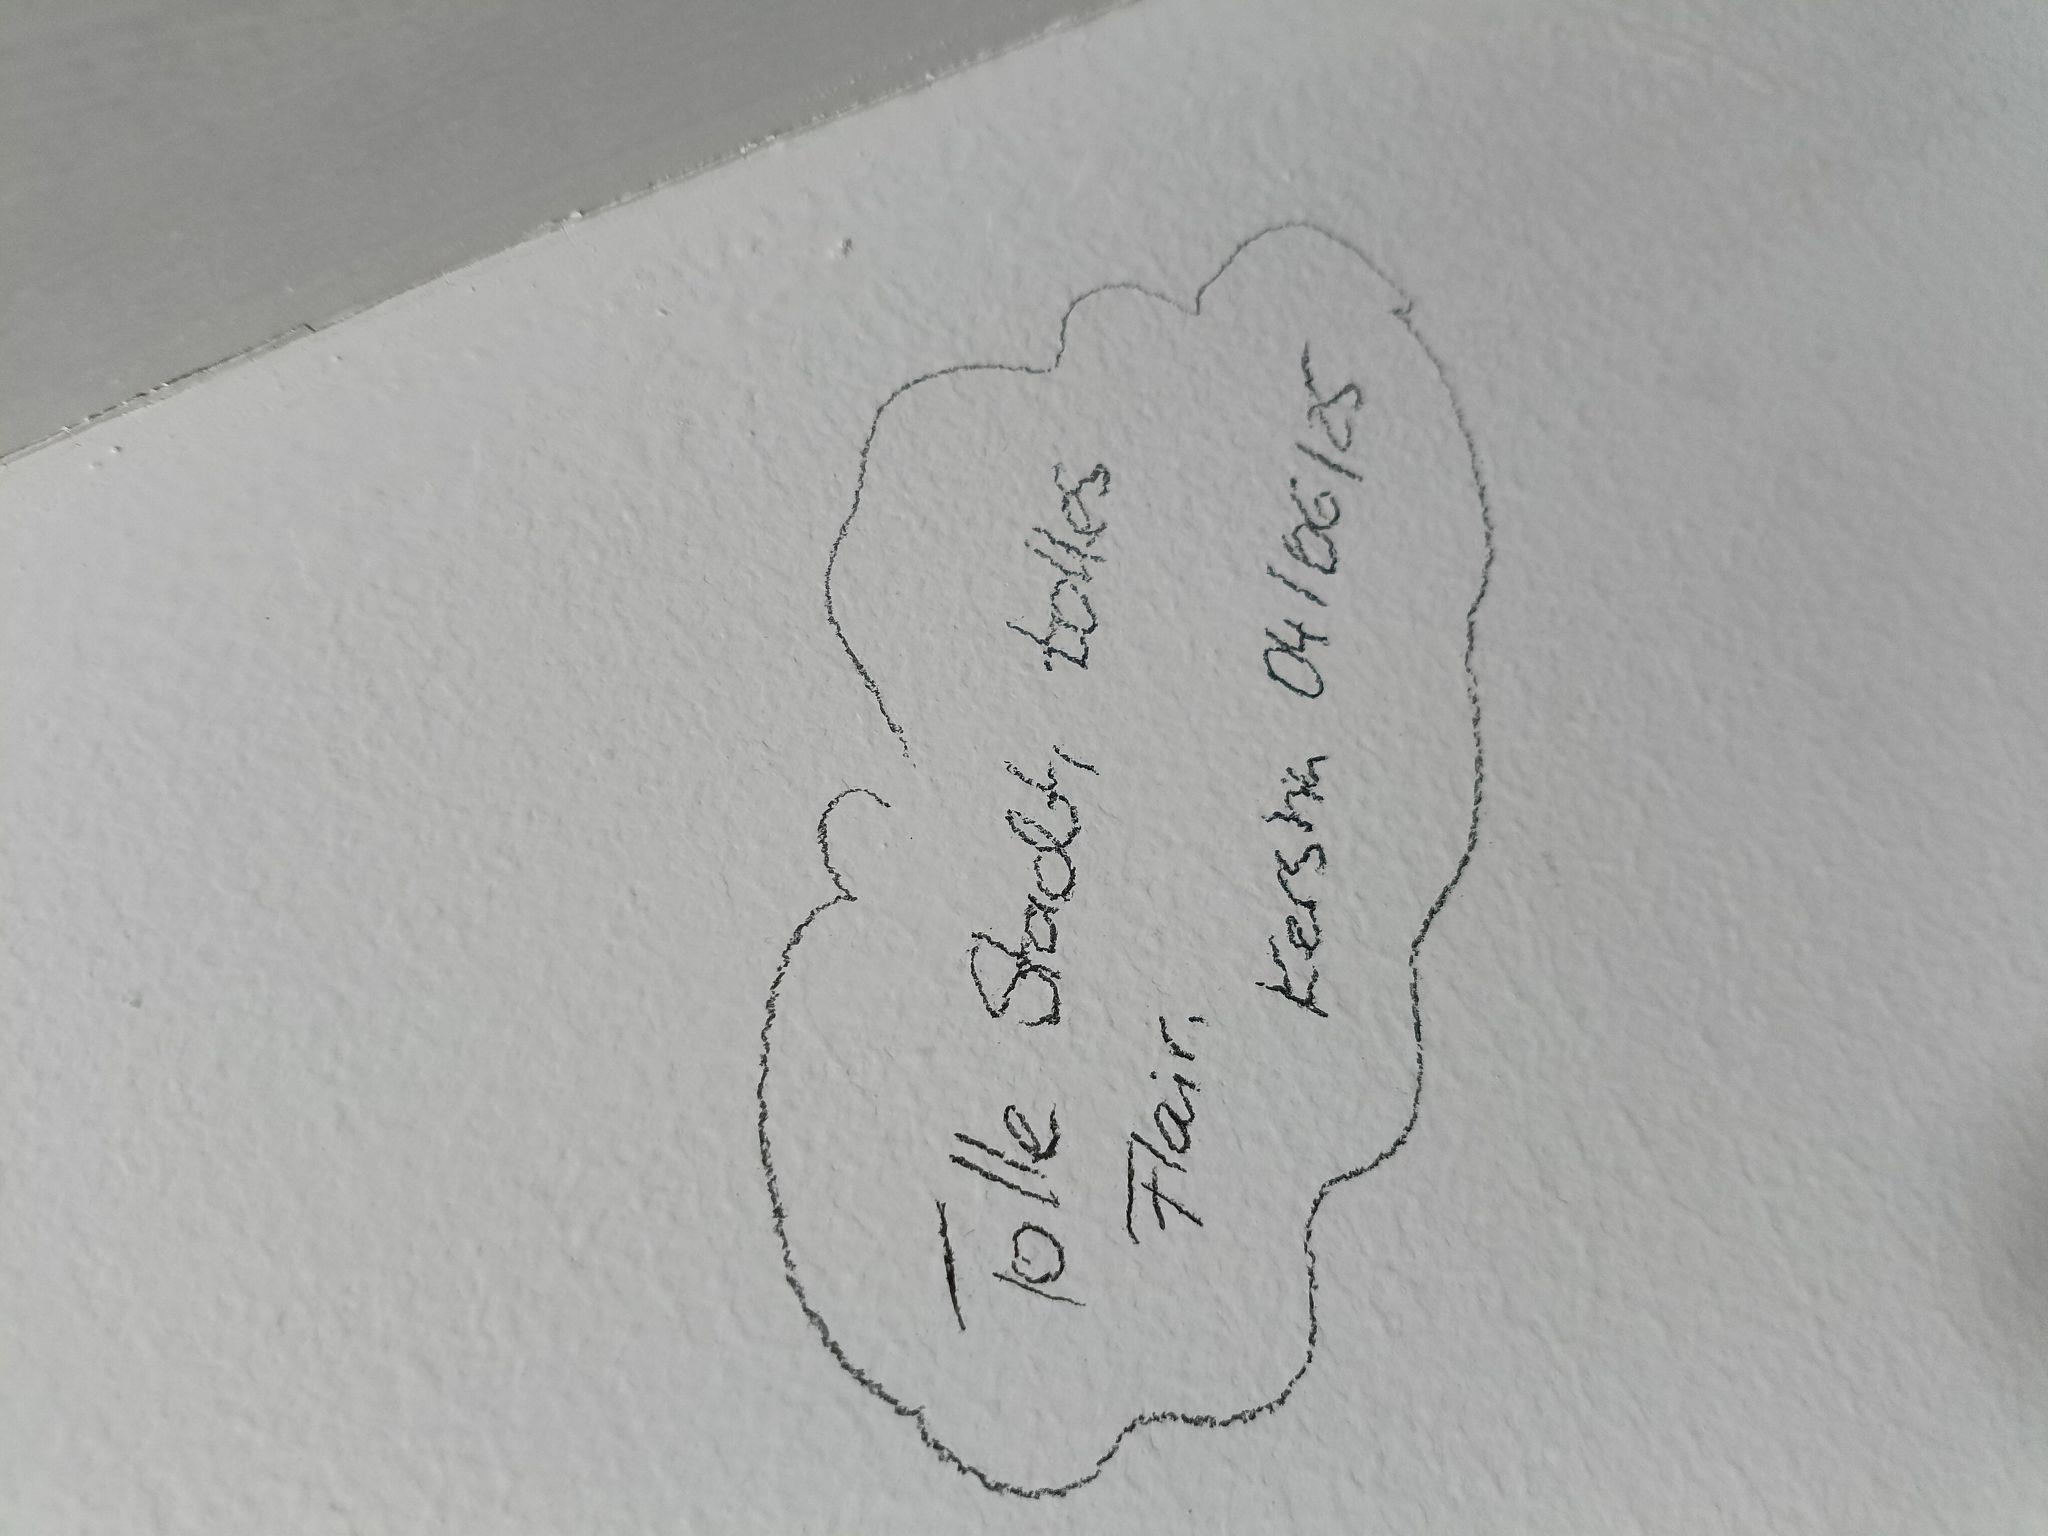 Tolle Stadt, tolles
Flair.
Kerstin 04/06/25